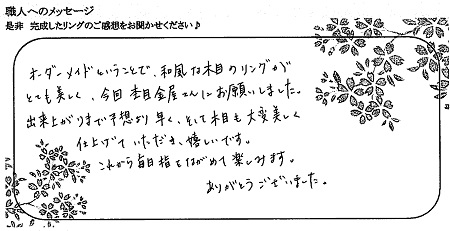 職人へのメッセージ
是非 完成したリングのご感想をお聞かせください♪
オーダーメイドということで、和風な木目のリングが
とても美しく、今回 杢目金屋さんにお願いしました。
出来上がりまで予想より早く、そして木目も大変美しく
仕上げていただき、嬉しいです。
これから毎日指をながめて楽しみます。
ありがとうございました。